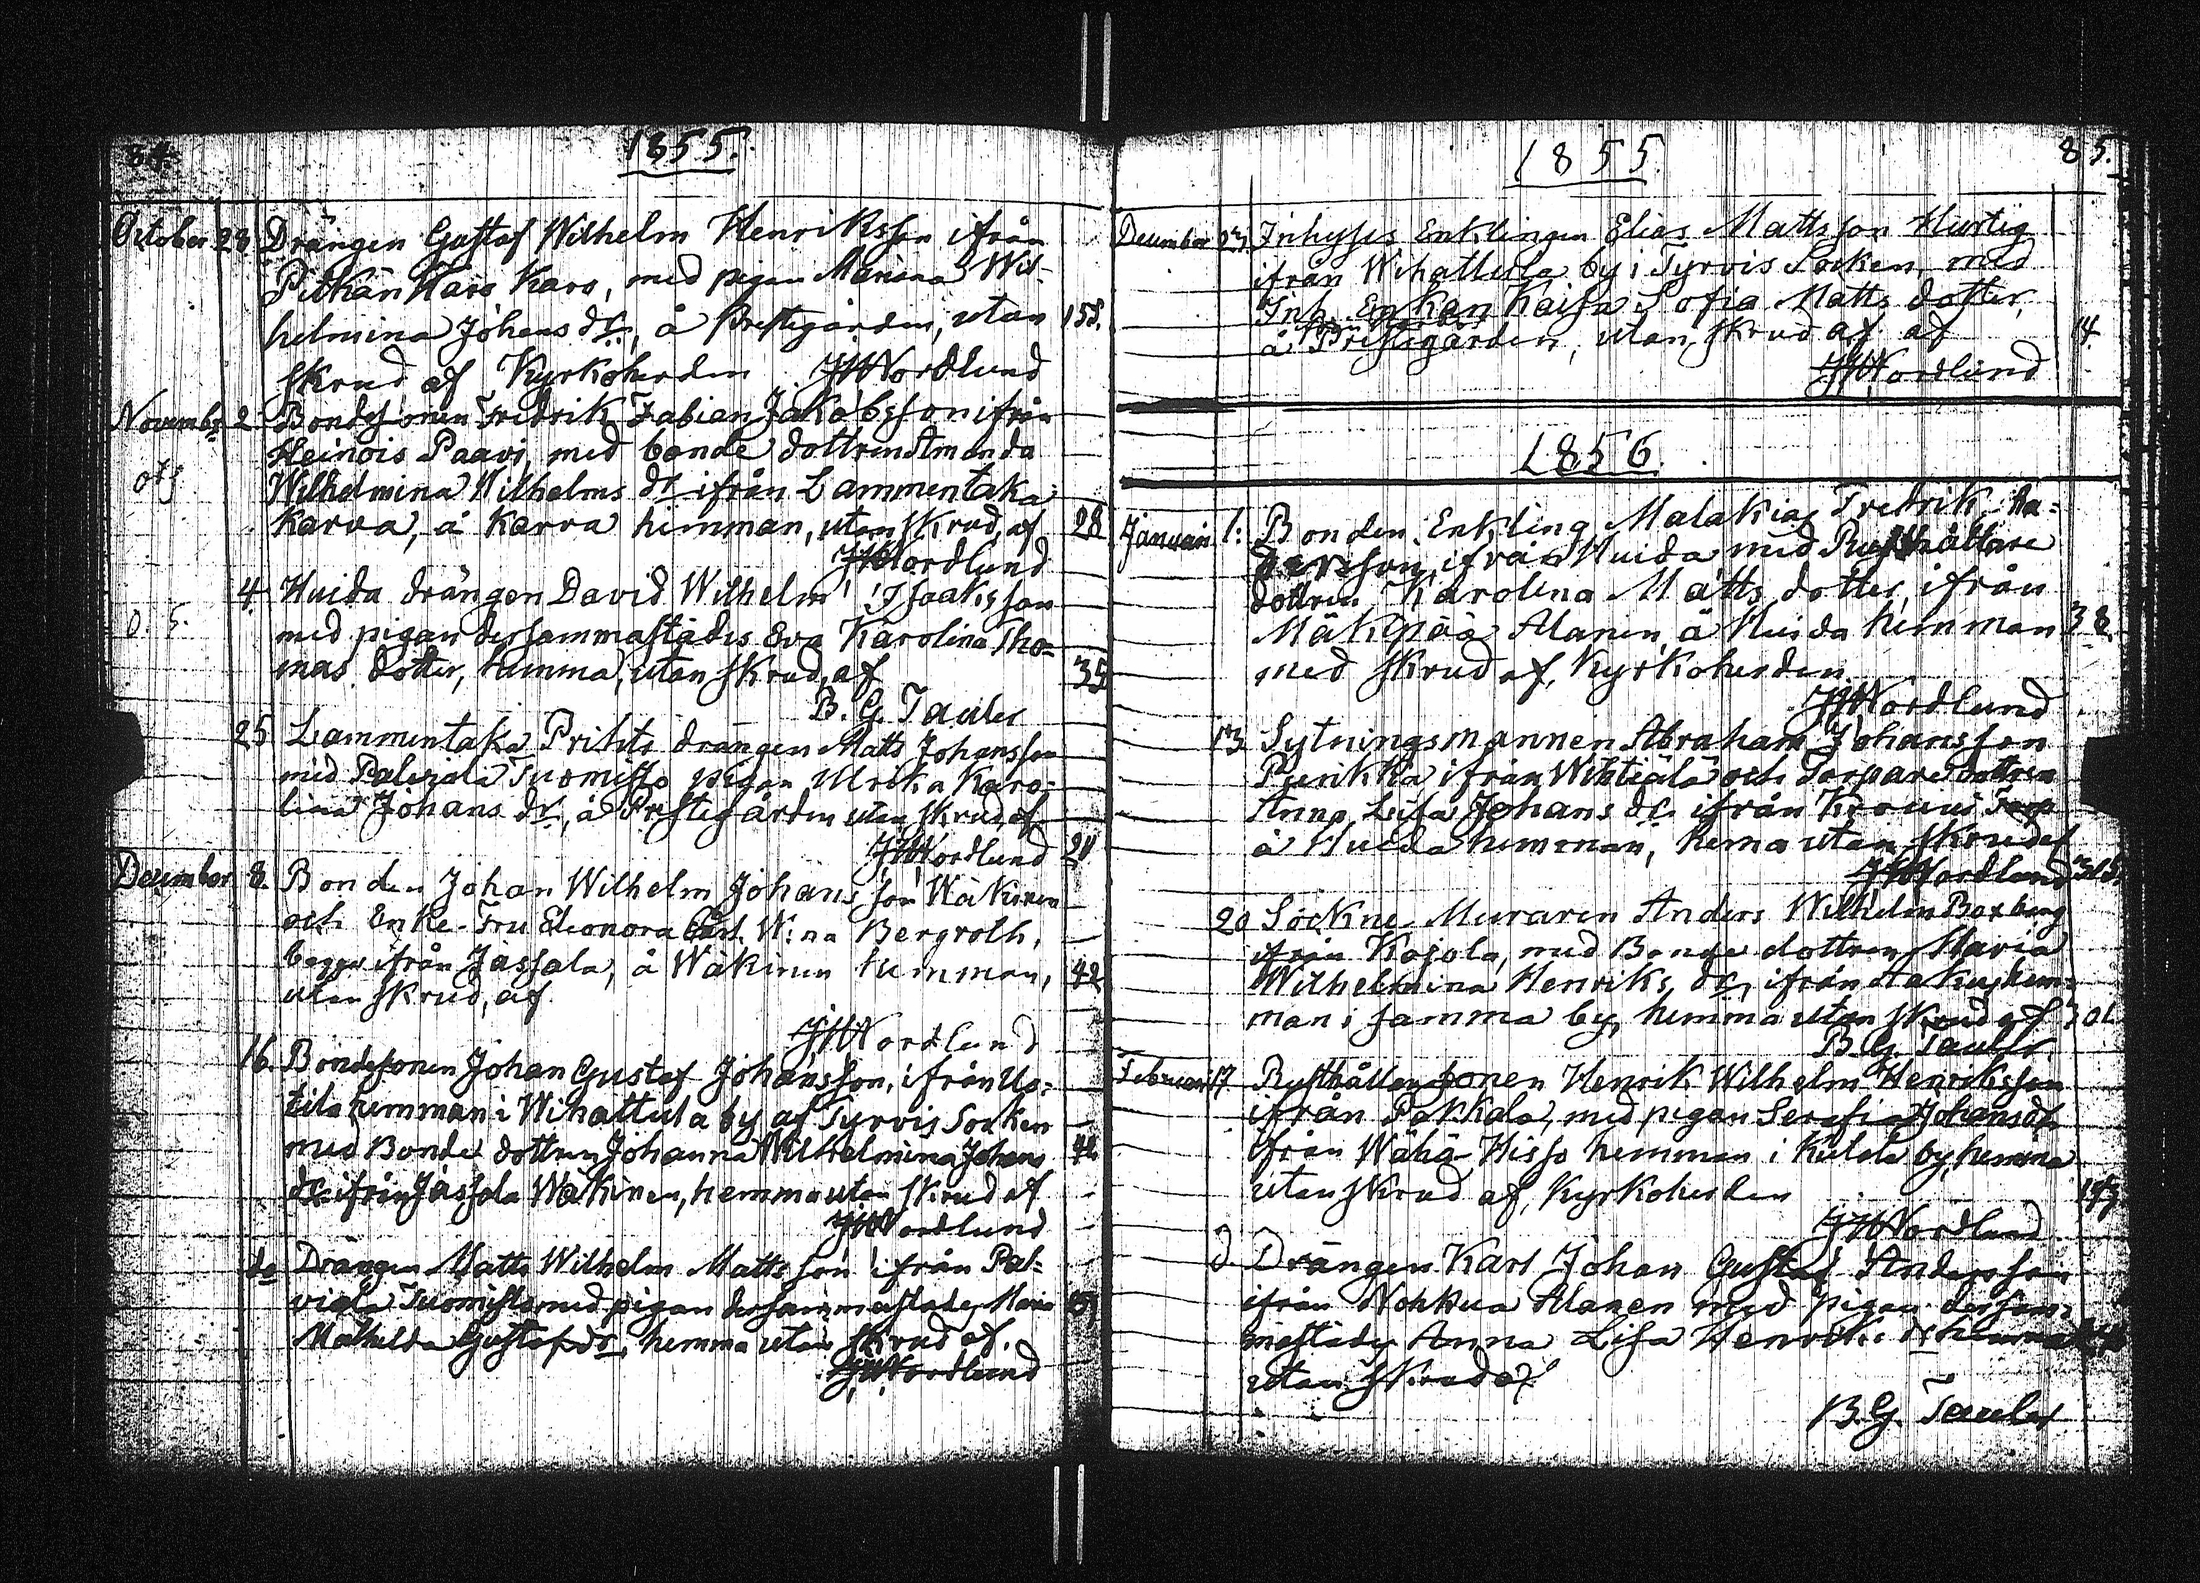 84.
1855.
October 28 Drängen Gustaf Wilhelm Henriksson ifrån
Karo, med pigan Mariana Wil-
helmina Johans dr, å Prestegården, utan 158.
skrud af Kyrkoherden JWNordlund
Novembr 2 Bondesonen Fredrik Fabian Jakobsson ifrån
Heinois Paavi med bonde dottren Amanda
Wilhelmina Wilhelms dr ifrån Lammentaka
Karva, å Karva hemman, utan skrud, af 28
JWNordlund
4 Huida drängen David Wilhelm Isaaksson
med pigan dersammastädes Eva Karolina Tho-
mas dotter, hemma, utan skrud, af 35
B. G. Tauler
25 Lammentaka Prihti drängen Matts Johansson
med Tuomisto pigan Ulrika Karo-
lina Johans dr, å Prestegården utan skrud, af
JWNordlund 21
December 8. Bonden Johan Wilhelm Johansson Wäkinen
och Enke-Fru Eleonora Carl. W:na Bergroth,
begge ifrån Jassala, å Wäkinen hemman, 42
utan skrud, af
JWNordlund
16. Bondesonen Johan Gustaf Johansson, ifrån Uo-
tila hemman i Wihattula by af Tyrvis Socken
med Bonde dottren Johanna Wilhelmina Johans
dr ifrån Jassala Wäkinen, hemma utan skrud af
JWNordlund
do Drängen Matts Wilhelm Mattsson ifrån Pal-
viala Tuomisto med pigan dersammastädes Maria
Mathilda Gustafs dr, hemma utan skrud af.
JWNordlund
1855.
85.
December 27 Inhyses Enklingen Elias Mattsson Hurtig
ifrån Wihattula by i Tyrvis Socken, med
Inh. Enkan Kaisa Sofia Matts dotter,
å Prestegården, utan skrud af 4.
JWNordlund
1856.
Januari 1: Bonden Enkling Malakias Fredrik
ifrån Huida med Rusthållare
dottren Karolina Matts dotter, ifrån
Mäkipää Alanen, å Huida hemman 38.
med skrud af, Kyrkoherden
JWNordlund
13 Sytningsmannen Abraham Johansson
ifrån Wihtiälä och Torpare dottren
Anna Lisa Johans dr ifrån
å Huida hemman, hema utan skrud af
JWNordlund
20 Sockne Muraren Anders Wilhelm Boxberg
ifrån Kojola, med Bonde dottren Maria
Wilhelmina Henriks dr, ifrån hem-
man i samma by, hemma utan skrud af
B. G. Tauler.
Februari 17 Rusthållaresonen Henrik Wilhelm Henriksson
ifrån Pakkala, med pigan Serafia Johans dr
ifrån Wähä Hisso hemman i Kulala by, hemma
utan skrud af, Kyrkoherden
JWNordlund
d Drängen Karl Johan Gustaf Andersson
ifrån Nohkua Alanen med pigan dersam-
mastädes Anna Lisa Henriks dr hemma
utan skrud af
B. G. Tauler